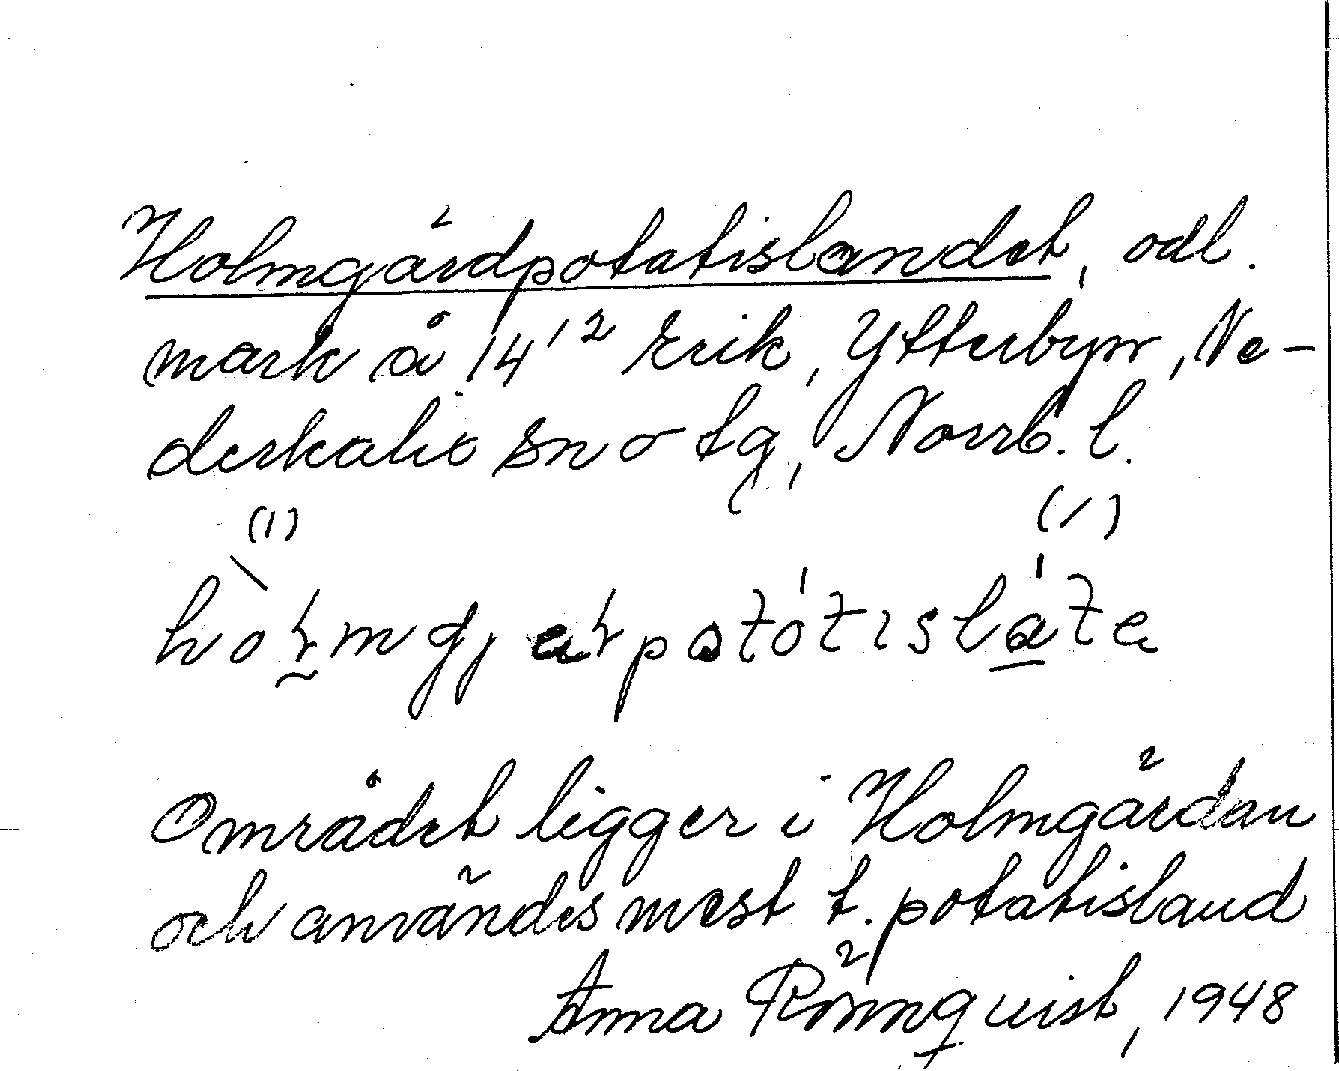 Holmgärdpotatislandet, odl.
mark å 14¹² Erik, Ytterbyn, Ne-
derkalix sn o tg, Norrb. l.
Området ligger i Holmgärdan
och användes mest t. potatisland
Anna Rönnquist, 1948